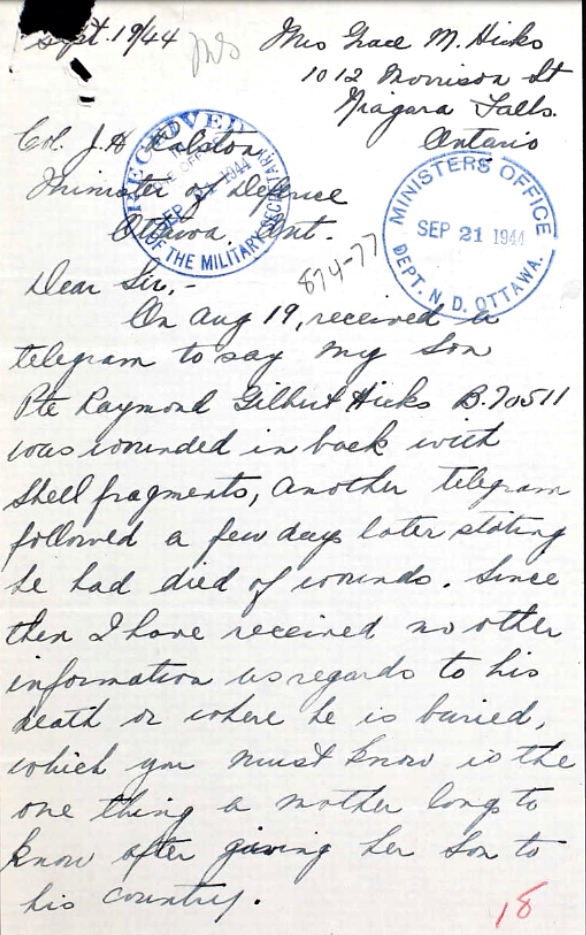 Sept. 19/44
Mrs
Mrs Grace M. Hicks
1012 Morrison St
Niagara Falls.
Ontario
Col. J. H Ralston
Minister of Defence
Ottawa, Ont.
RECEIVED
SEP 21 1944
OF THE MILITARY SECRETARY
MINISTERS OFFICE
SEP 21 1944
DEPT. N. D. OTTAWA.
874-77
Dear Sir,-
On Aug 19, received a
telegram to say my Son
Pte Raymond Gilbert Hicks B.70511
was wounded in back with
shell fragments, another telegram
followed a few days later stating
he had died of wounds. Since
then I have received no other
information as regards to his
death or where he is buried,
which you must know is the
one thing a mother longs to
know after giving her son to
his country.
18